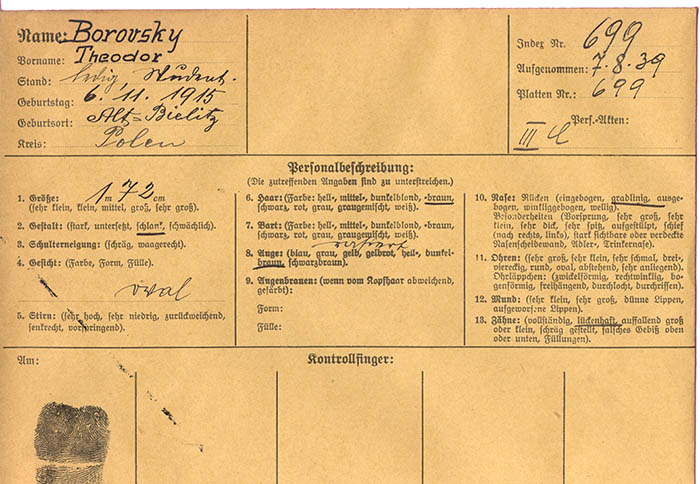 Name: Borovsky
Vorname: Theodor
Stand: ledig, Student.
Geburtstag: 6. 11. 1915
Geburtsort: Alt-Bielitz
Kreis: Polen
Index Nr. 699
Aufgenommen: 7. 8. 39
Platten Nr.: 699
Pers.-Akten:
III
Personalbeschreibung:
(Die zutreffenden Angaben sind zu unterstreichen.)
1. Größe: 1 m 72 cm
(sehr klein, klein, mittel, groß, sehr groß).
2. Gestalt: (stark, untersetzt, schlank, schwächlich).
3. Schulterneigung: (schräg, waagerecht).
4. Gesicht: (Farbe, Form, Fülle).
oval
5. Stirn: (sehr hoch, sehr niedrig, zurückweichend,
senkrecht, vorspringend).
6. Haar: (Farbe: hell-, mittel-, dunkelblond, -braun,
schwarz, rot, grau, graugemischt, weiß).
7. Bart: (Farbe: hell-, mittel-, dunkelblond, -braun,
schwarz, rot, grau, graugemischt, weiß).
rasiert
8. Auge: (blau, grau, gelb, gelbrot, hell-, dunkel-
braun, schwarzbraun).
9. Augenbrauen: (wenn vom Kopfhaar abweichend,
gefärbt):
Form:
Fülle:
10. Nase: Rücken (eingebogen, gradlinig, ausge-
bogen, winkliggebogen, wellig).
Besonderheiten (Vorsprung, sehr groß, sehr
klein, sehr dick, sehr spitz, aufgestülpt, schief
[nach rechts, links]) stark sichtbare oder verdeckte
Nasenscheidewand, Adler-, Trinkernase).
11. Ohren: (sehr groß, sehr klein, sehr schmal, drei-,
viereckig, rund, oval, abstehend, sehr anliegend).
Ohrläppchen: (zwickelförmig, rechtwinklig, bo-
genförmig, freihängend, durchlocht, durchrissen).
12. Mund: (sehr klein, sehr groß, dünne Lippen,
aufgeworfene Lippen).
13. Zähne: (vollständig, lückenhaft, auffallend groß
oder klein, schräg gestellt, falsches Gebiß oben
oder unten, Füllungen).
Am:
Kontrollfinger: